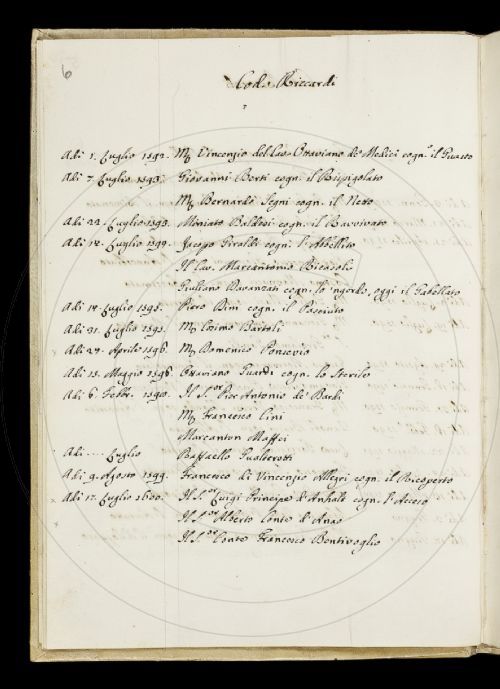 6
Cod. Riccardi
Adi 1. Luglio 1592. M. Vincenzio del Cav. Ottaviano de Medici cogn.o il Guasto
Adi 7. Luglio 1593. Giovanni Berti cogn. il Rispigolato
M. Bernardo Segni cogn. il Neto
Adi 22. Luglio 1593. Moniato Baldesi cogn. il Ravvivato
Adi 14. Luglio 1594. Jacopo Giraldi cogn. l'Abbellito
Il Cav. Marcantonio Bicasoli
Giuliano Davanzati cogn. lo oggi il Gabellato
Adi 14. Luglio 1595. Piero Bini cogn. il Pasciuto
Adi 31. Luglio 1595. M. Cosimo Bartoli
Adi 24. Aprile 1596. M. Domenico Ponsevio
Adi 13. Maggio 1596. Ottaviano Guardi cogn. lo Sterile
Adi 6. Febbr. 1590. Il S.or Pier Antonio de' Bardi
M. Francesco Cini
Marcanton Maffei
Adi .... Luglio Raffaello Gualterotti
Adi 9. Agosto 1599. Francesco di Vincenzio Allegri cogn. il Ricoperto
Adi 17. Luglio 1600. Il S.or Luigi Principe d'Anhalt cogn. l'Acceso
Il S.or Alberto Conte d'Anao
Il S.or Conte Francesco Bentivoglio